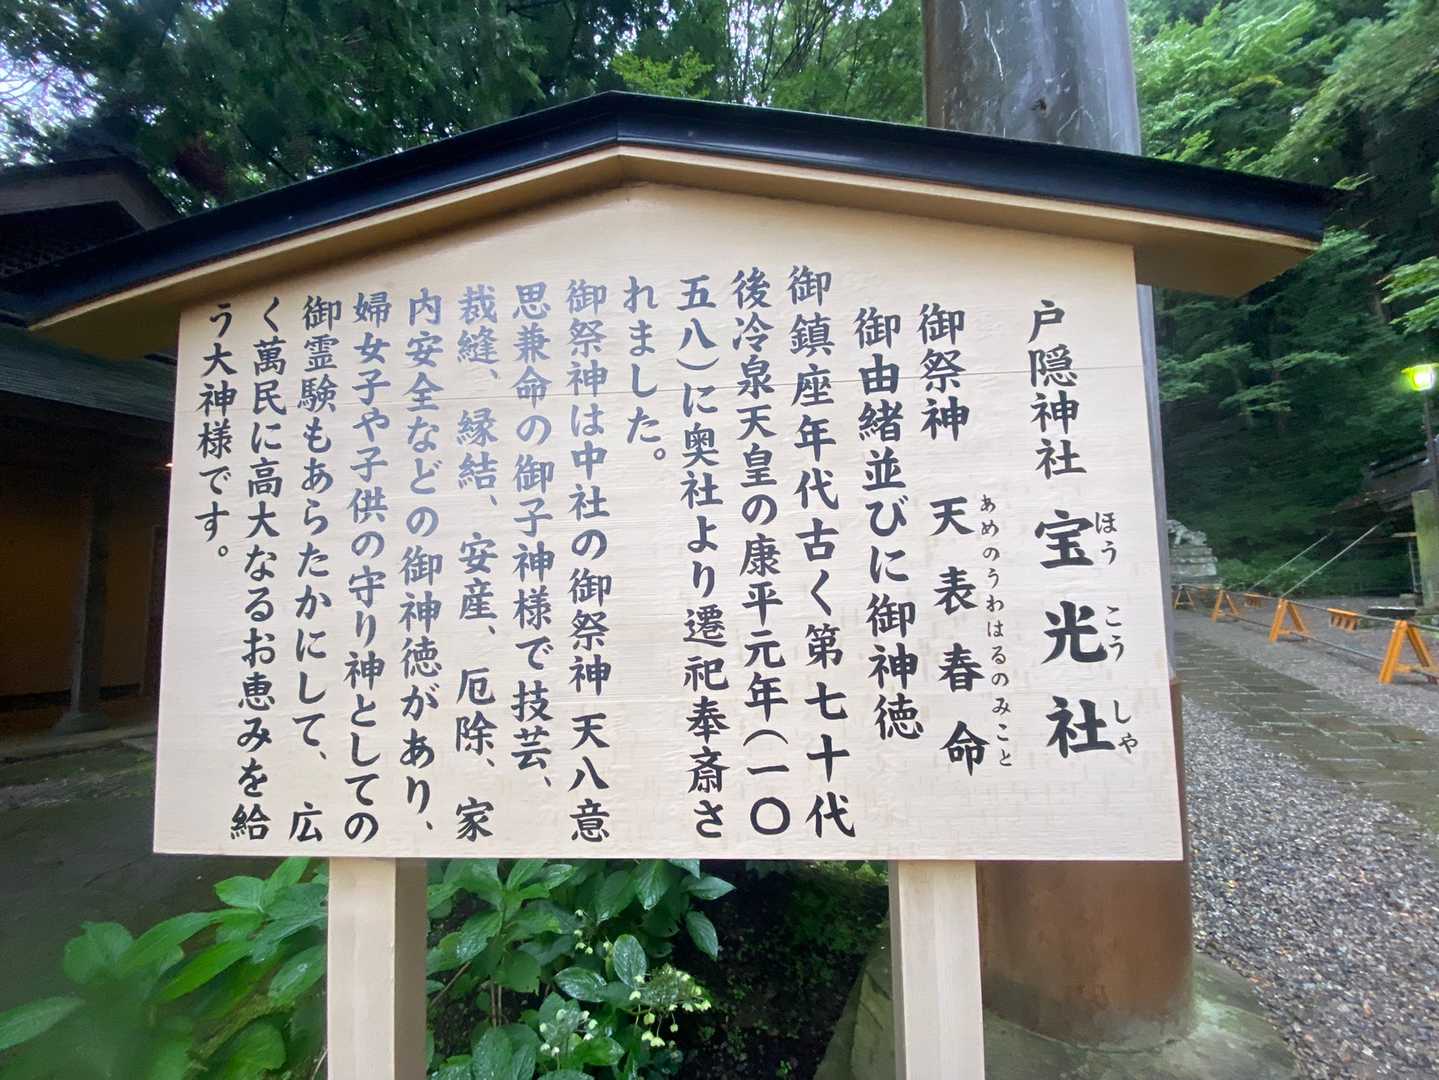 戸隠神社 宝光社
ほう こう しや
御祭神 天表春命
あめのうわはるのみこと
御由緒並びに御神徳
御鎮座年代古く第七十代
後冷泉天皇の康平元年(一〇
五八)に奥社より遷祀奉斎さ
れました。
御祭神は中社の御祭神 天八意
思兼命の御子神様で技芸、
裁縫、縁結、安産、厄除、家
内安全などの御神徳があり、
婦女子や子供の守り神としての
御霊験もあらたかにして、広
く萬民に高大なるお恵みを給
う大神様です。